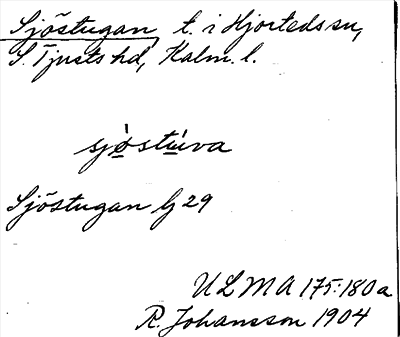 Sjöstugan t. i Hjorteds sn,
S. Tjusts hd, Kalm. l.
sjòstúva
Sjöstugan lj 29
ULMA 175:180a
R. Johansson 1904